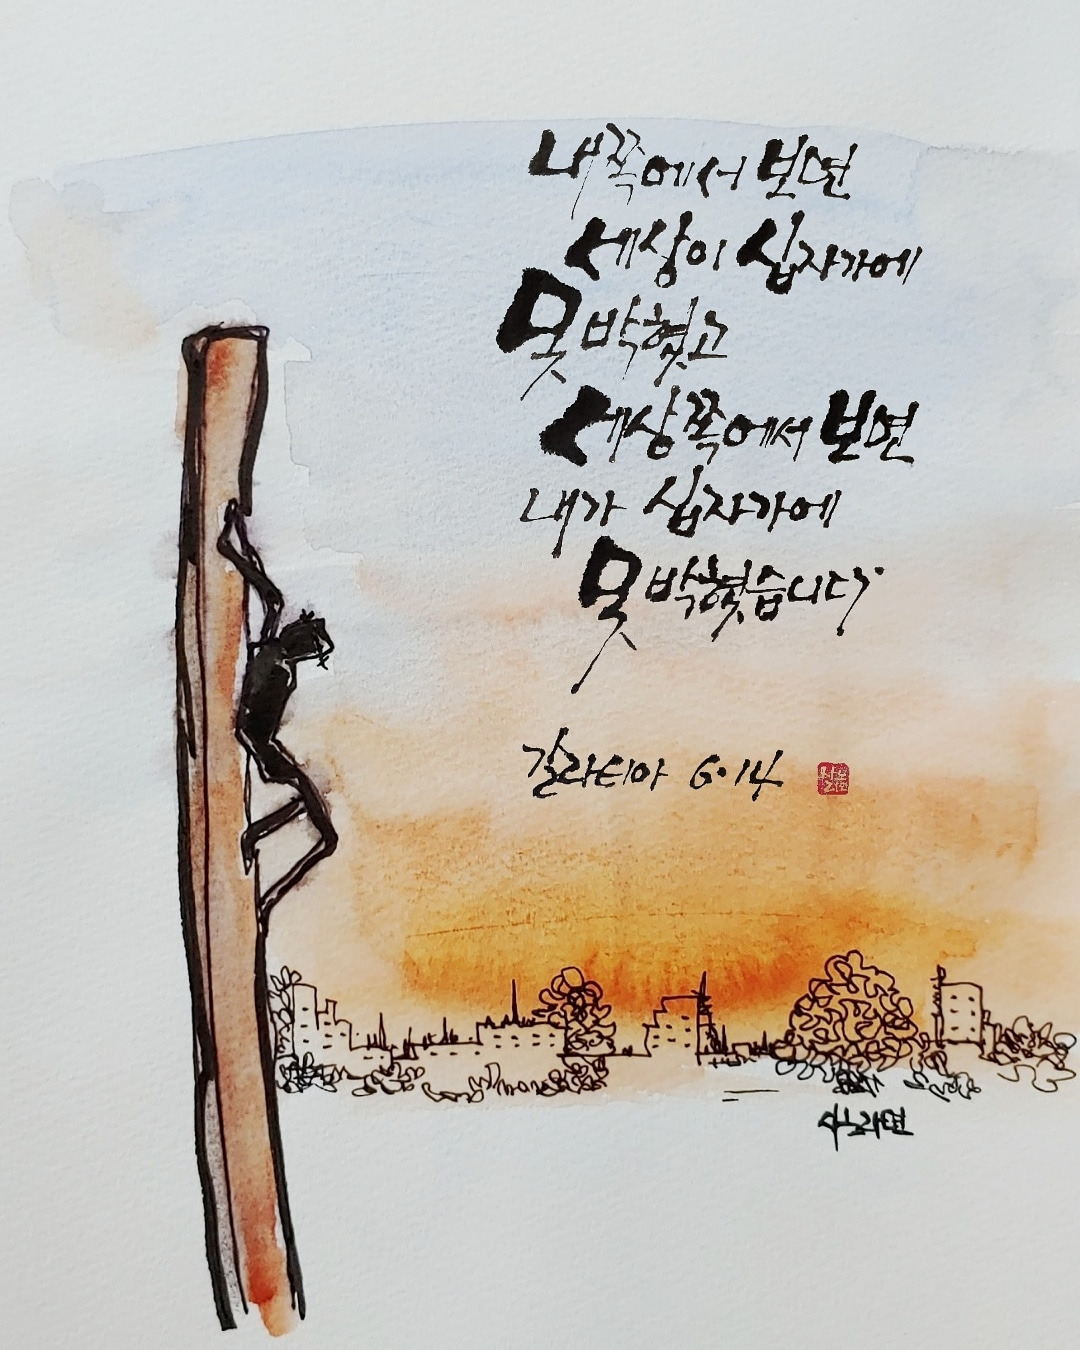 내쪽에서 보면
세상이 십자가에
못박혔고
세상쪽에서 보면
내가 십자가에
못박혔습니다
갈라티아 6·14